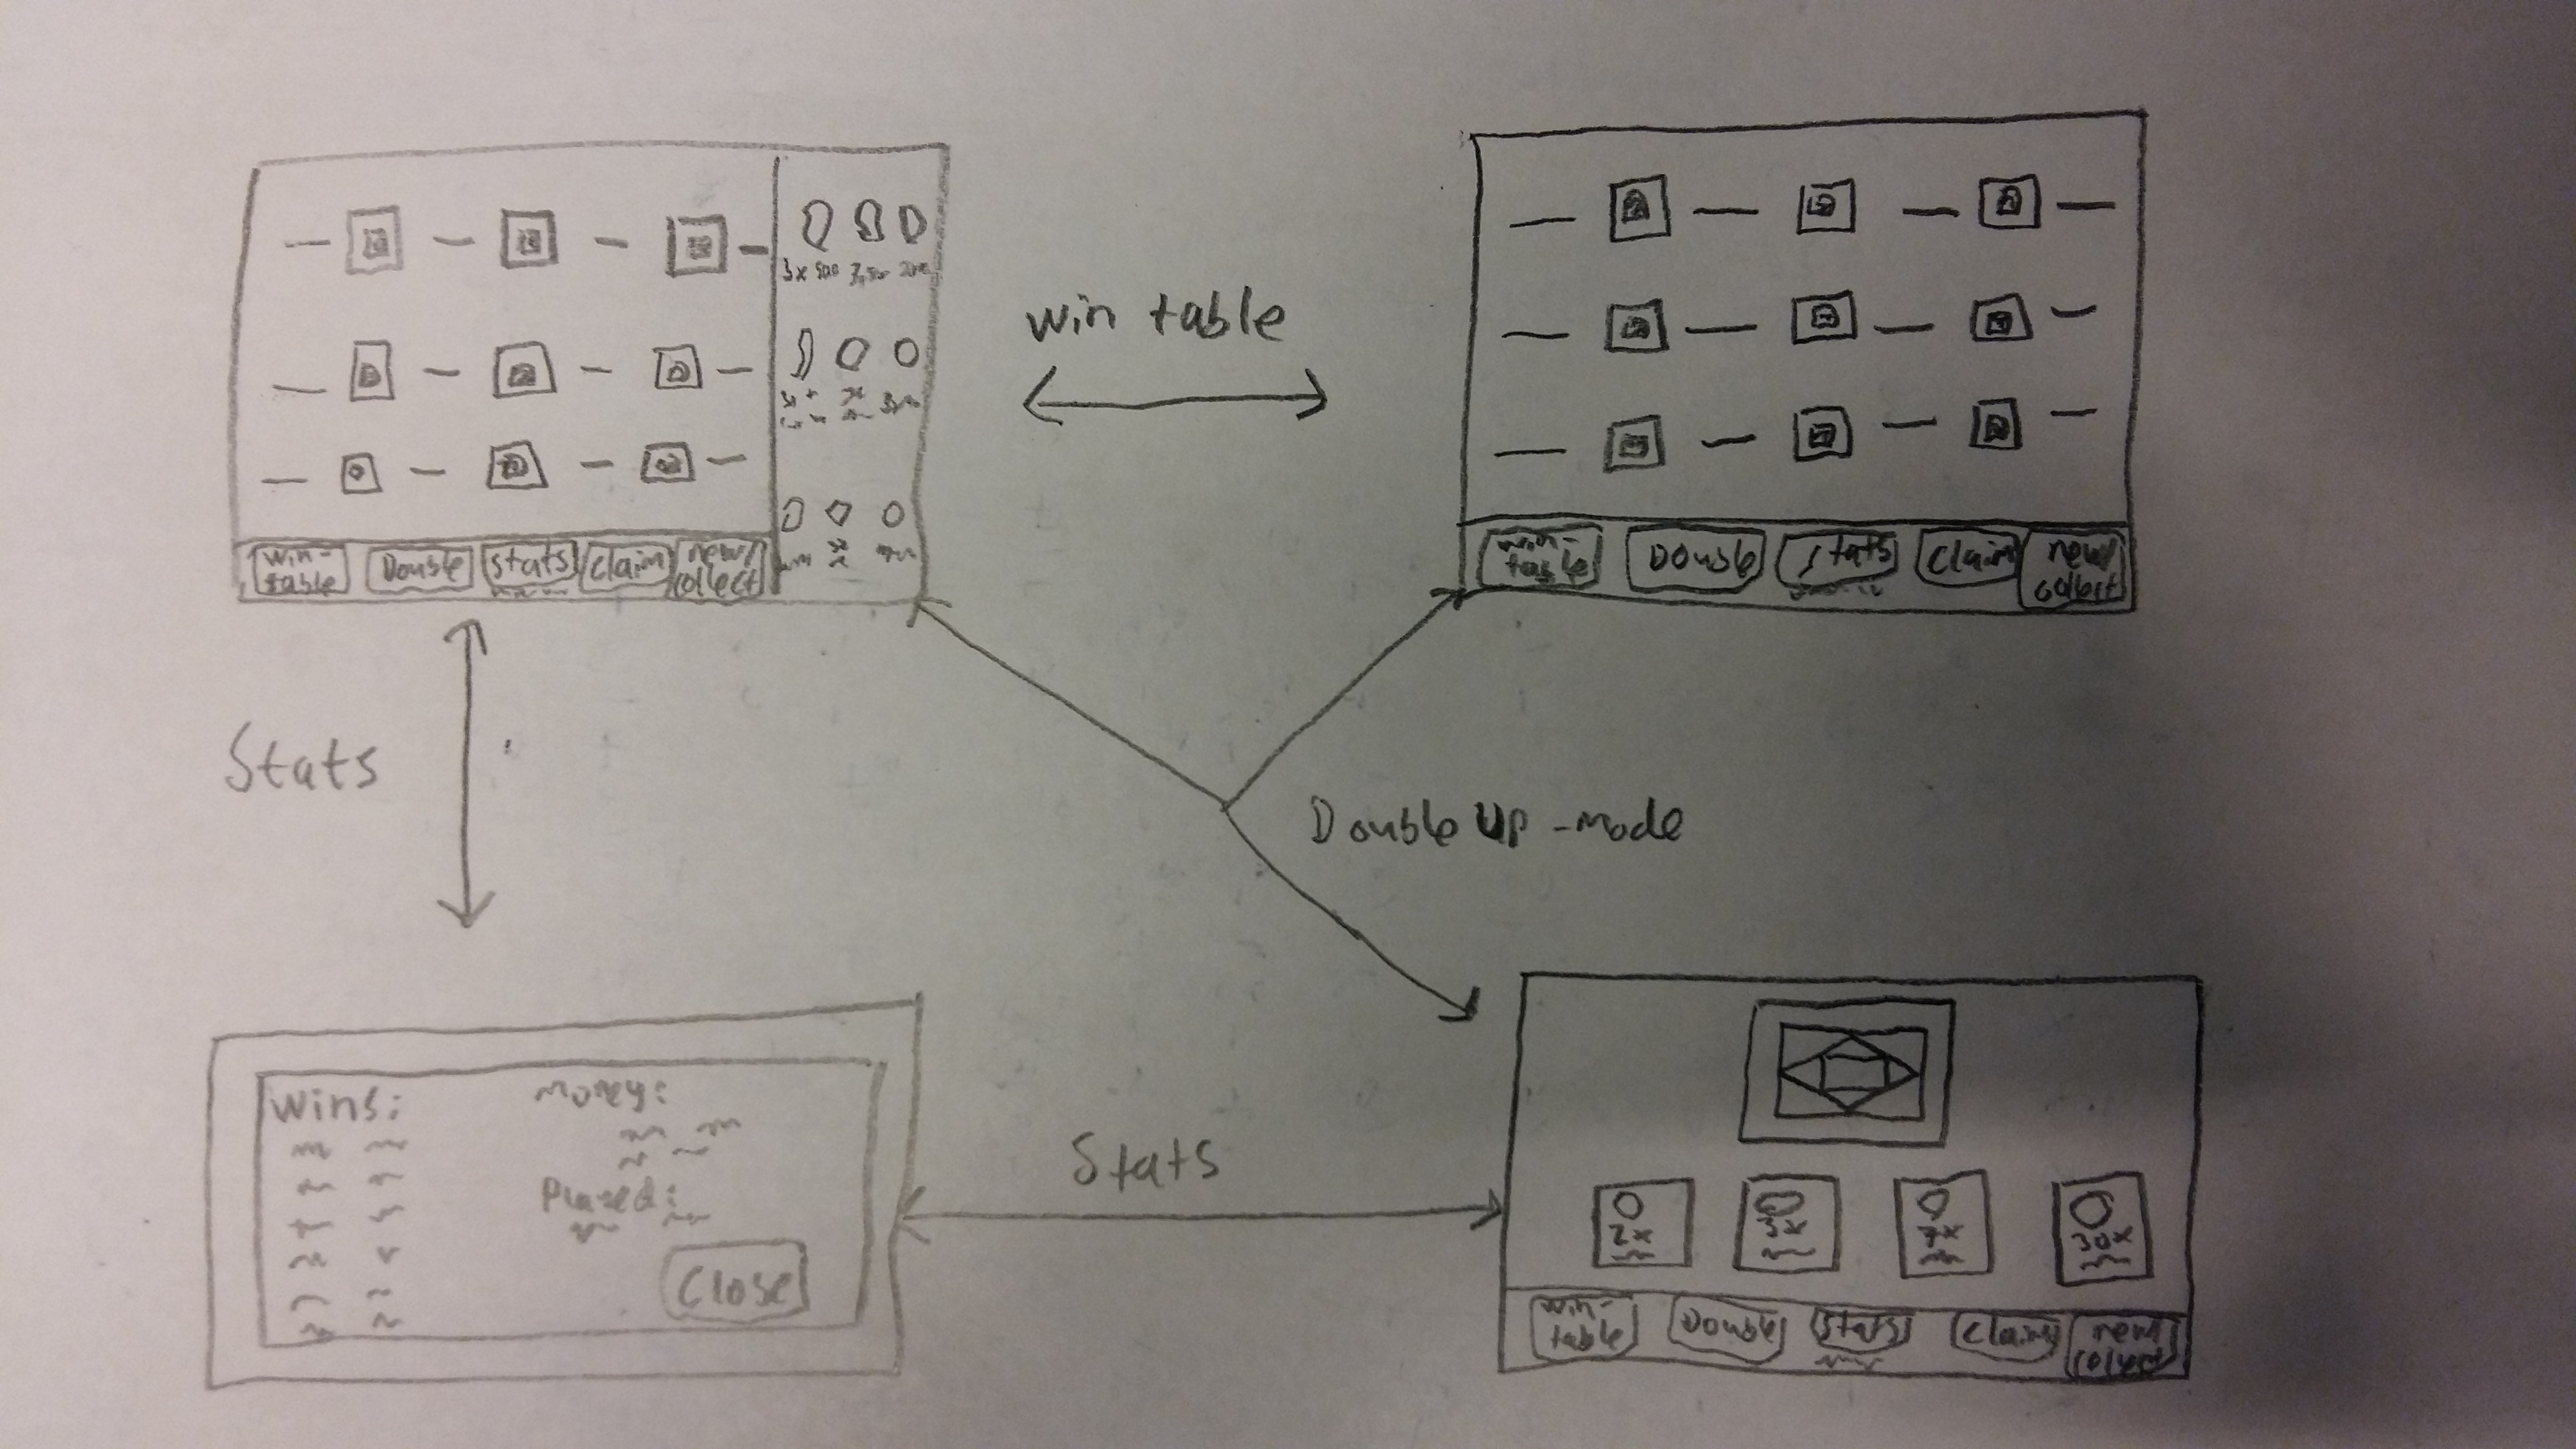 3x
win-
table
Double
Stats
Claim
new/
collect
win table
win-
table
Double
Stats
Claim
new/
collect
Stats
Double Up -mode
Wins:
Money:
Played:
Close
Stats
2x
3x
30x
win-
table
Double
Stats
Claim
new/
collect